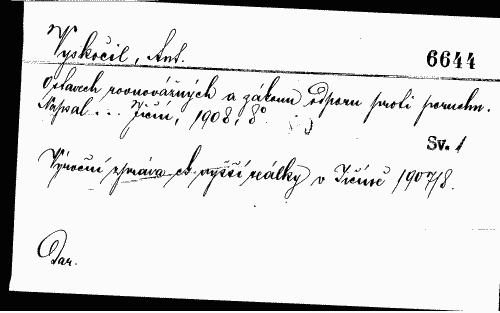 Vyskočil, Ant.
6644
O stavech rovnovážných a zákonu odporu proti poruchn.
Napsal ... Jičín, 1908, 8°
Sv. 1
Výroční zpráva ch. vyšší reálky v Jičíně 1907/8.
Dar.